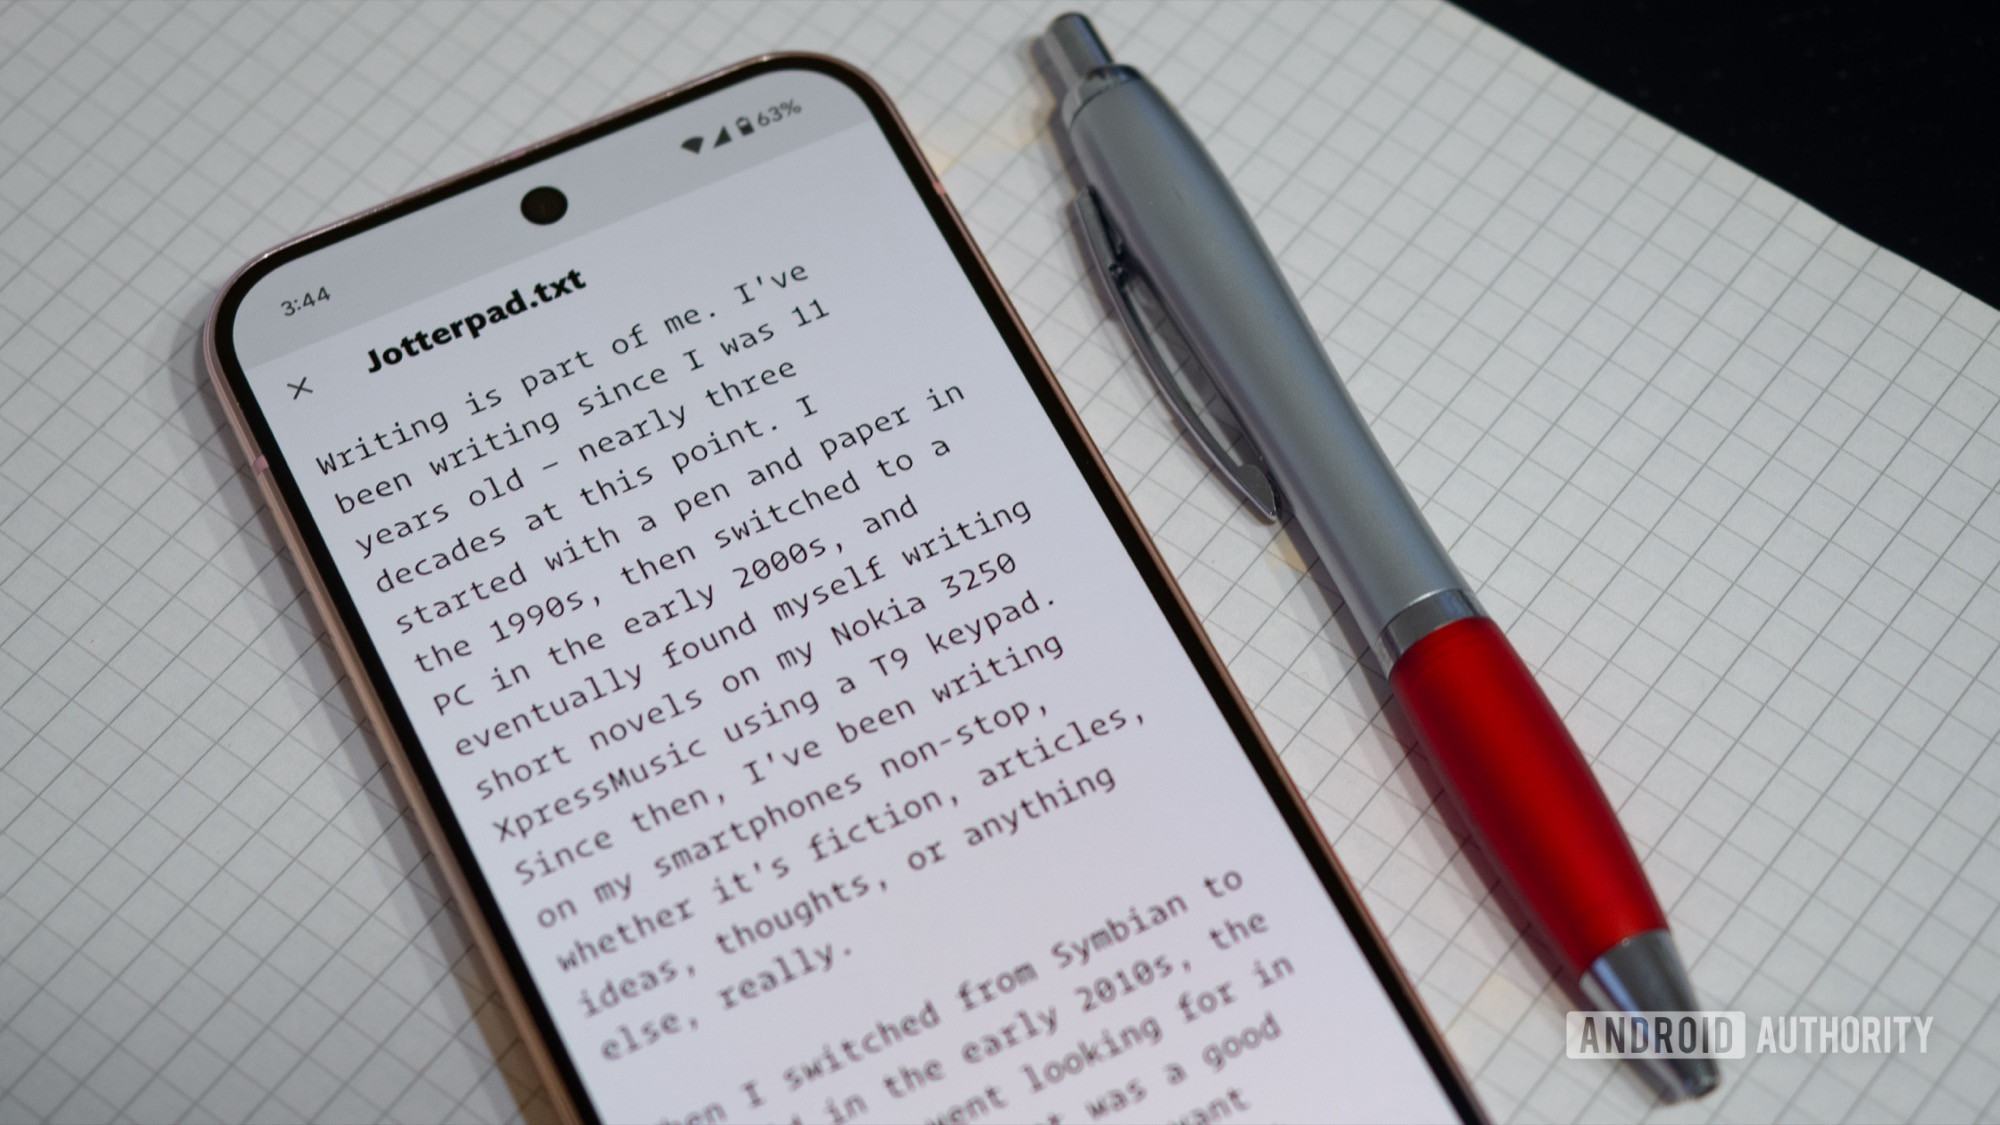 3:44
63%
Jotterpad.txt
Writing is part of me. I've
been writing since I was 11
years old – nearly three
decades at this point. I
started with a pen and paper in
the 1990s, then switched to a
PC in the early 2000s, and
eventually found myself writing
short novels on my Nokia 3250
XpressMusic using a T9 keypad.
Since then, I've been writing
on my smartphones non-stop,
whether it's fiction, articles,
ideas, thoughts, or anything
else, really.
I switched from Symbian to
in the early 2010s, the
went looking for in
was a good
want
ANDROID AUTHORITY